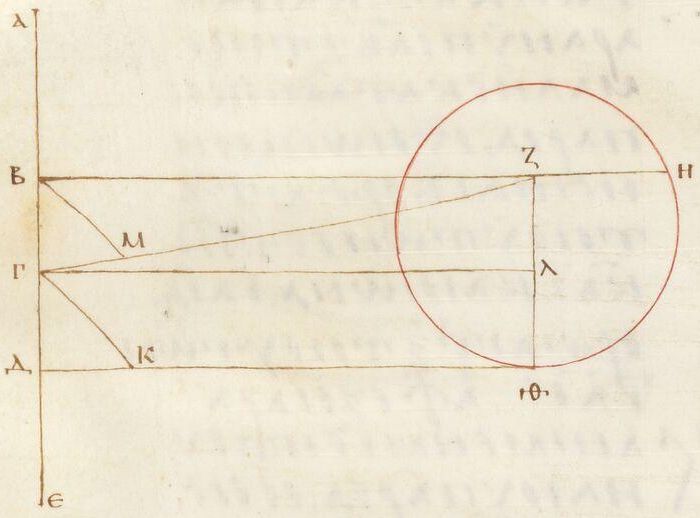 Α
Β Ζ Η
Μ
Γ Λ
Δ Κ
Θ
Ε